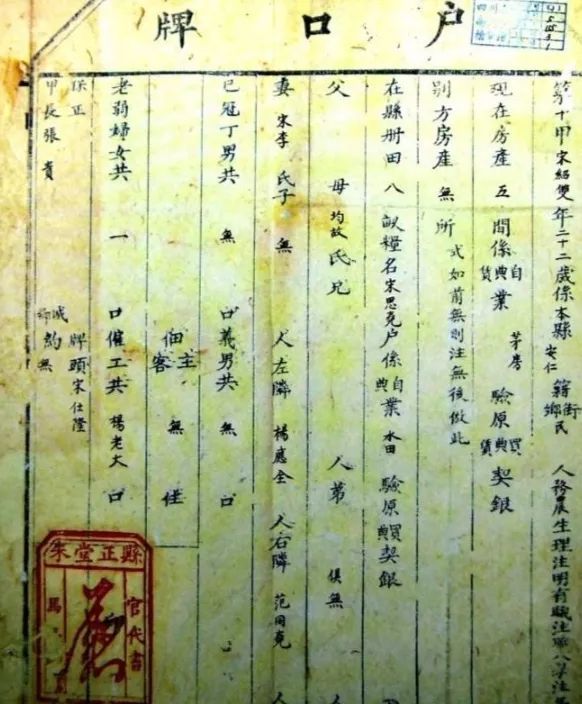 户口牌
第十甲宋紹雙年二十二歲係本縣安仁籍街鄉民人務農生理注明有職注職
現在房產五間係自典賃業茅房驗原買典賃契銀
別方房產無所式如前無則注無後倣此
在縣册田八畝糧名宋思克户係自典業水田驗原買典契銀
父母均故氏兄人弟俱無人
妻宋李氏子無人左隣楊應全人右隣范同克人
已冠丁男共無口義男共無口
佃主客無住
老弱婦女共一口僱工共楊老大口
保正牌頭宋仕隆
甲長張貴約無
縣正堂朱
官代書
馬